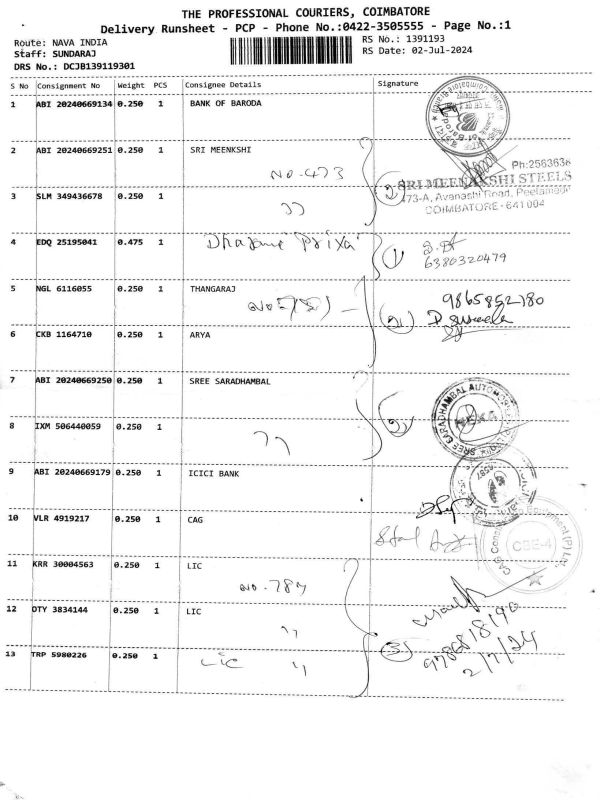 THE PROFESSIONAL COURIERS, COIMBATORE
Delivery Runsheet - PCP - Phone No.:0422-3505555 - Page No.:1
Route: NAVA INDIA
Staff: SUNDARAJ
DRS No.: DCJB139119301
RS No.: 1391193
RS Date: 02-Jul-2024
S No Consignment No Weight PCS Consignee Details Signature
1 ABI 20240669134 0.250 1 BANK OF BARODA
2 ABI 20240669251 0.250 1 SRI MEENKSHI
NO-473
Ph:2563636
SRI MEENAKSHI STEELS
473-A, Avanashi Road, Peelamedu
COIMBATORE - 641 004
3 SLM 349436678 0.250 1
2
4 EDQ 25195041 0.475 1 Dharani Priya
1
6380320479
5 NGL 6116055 0.250 1 THANGARAJ
9865852780
6 CKB 1164710 0.250 1 ARYA
7 ABI 20240669250 0.250 1 SREE SARADHAMBAL
SREE SARADHAMBAL AUTOM
8 IXM 506440059 0.250 1
9 ABI 20240669179 0.250 1 ICICI BANK
10 VLR 4919217 0.250 1 CAG
CBE-4
11 KRR 30004563 0.250 1 LIC
NO. 787
12 OTY 3834144 0.250 1 LIC
13 TRP 5980226 0.250 1 LIC
3
2/7/24